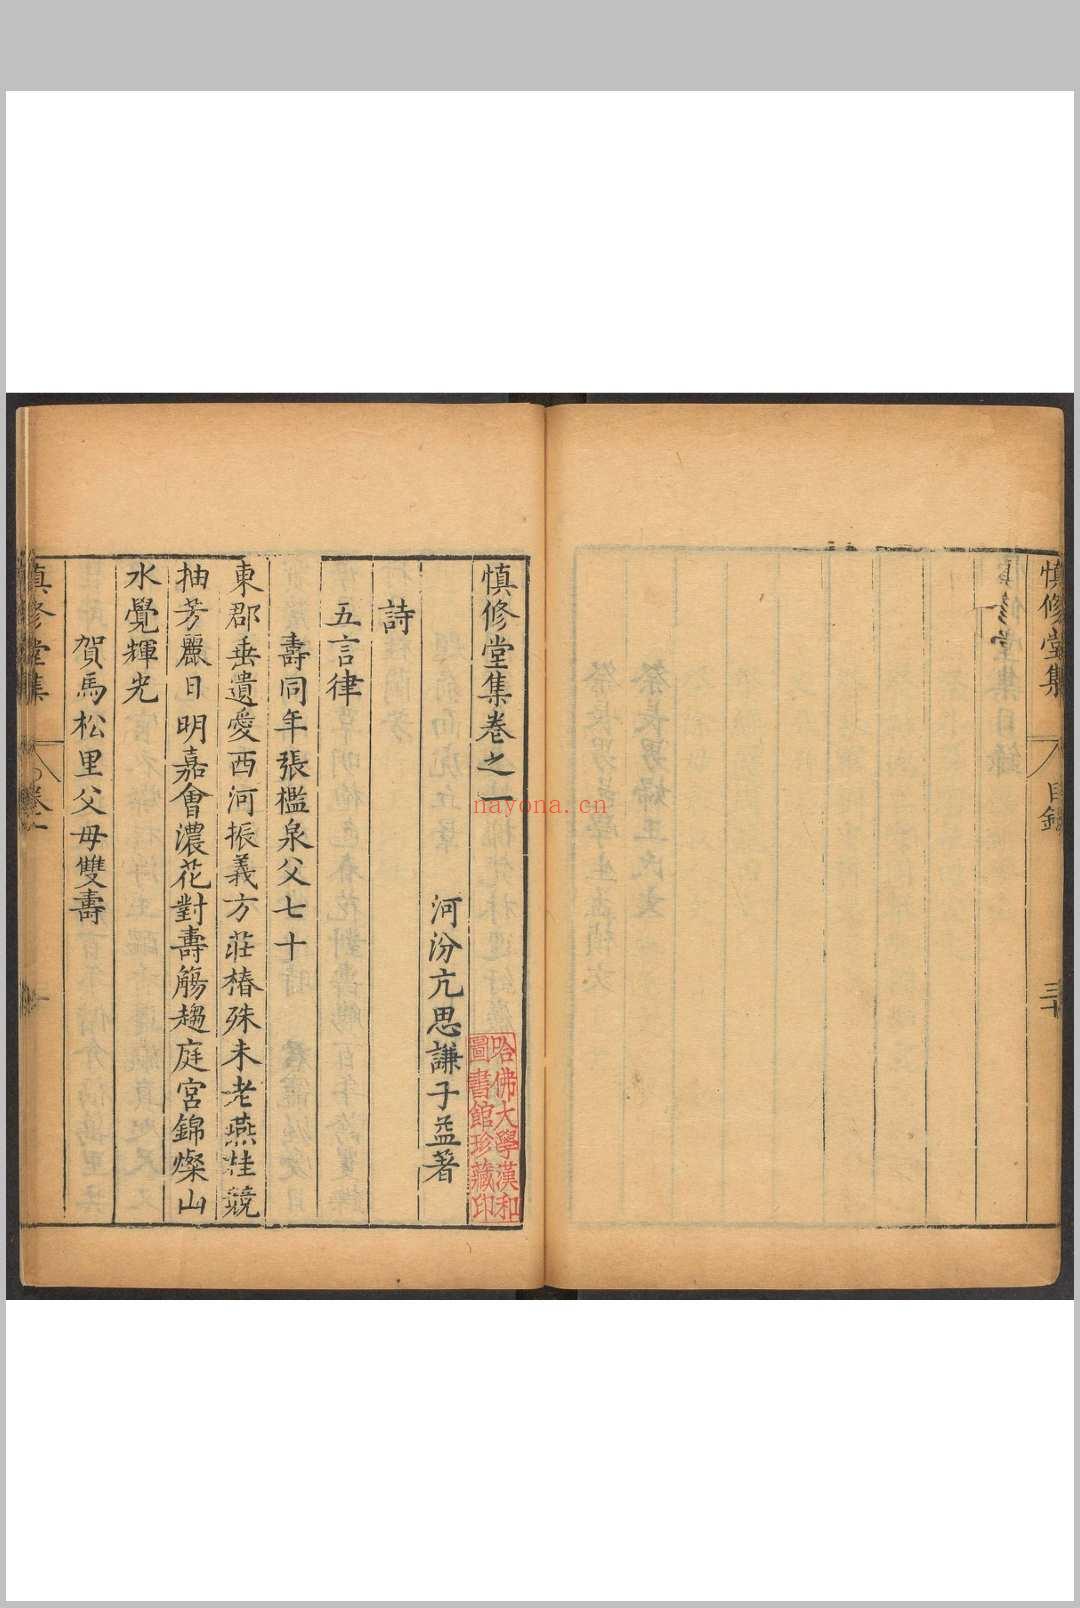 慎修堂集
目錄
慎修堂集卷之一
河汾亢思謙子益著
詩
五言律
壽同年張檻泉父七十
東郡垂遺愛西河振義方莊椿殊未老燕桂競
抽芳麗日明嘉會濃花對壽觴趨庭宮錦燦山
水覺輝光
賀馬松里父母雙壽
慎修堂集
卷一
哈佛大學漢和
圖書館珍藏印
nayona.cn